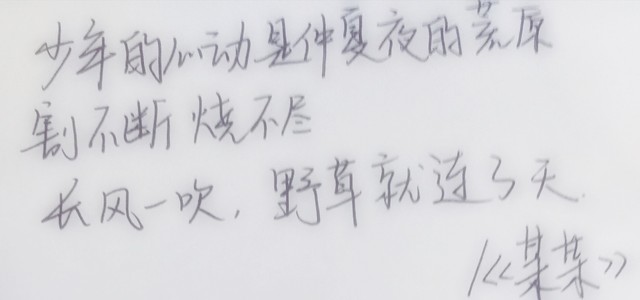 少年的心动是仲夏夜的荒原
割不断 烧不尽
长风一吹，野草就连了天.
/《某某》